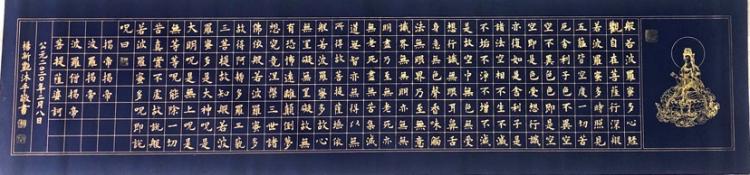 般若波羅蜜多心經
觀自在菩薩行深般
若波羅蜜多時照見
五蘊皆空度一切苦
厄舍利子色不異空
空不異色色即是空
空即是色受想行識
亦復如是舍利子是
諸法空相不生不滅
不垢不淨不增不減
是故空中無色無受
想行識無眼耳鼻舌
身意無色聲香味觸
法無眼界乃至無意
識界無無明亦無無
明盡乃至無老死亦
無老死盡無苦集滅
道無智亦無得以無
所得故菩提薩埵依
般若波羅蜜多故心
無罣礙無罣礙故無
有恐怖遠離顛倒夢
想究竟涅槃三世諸
佛依般若波羅蜜多
故得阿耨多羅三藐
三菩提故知般若波
羅蜜多是大神呪是
大明呪是無上呪是
無等等呪能除一切
苦真實不虛故說般
若波羅蜜多呪即說
呪曰
揭帝揭帝
波羅揭帝
波羅僧揭帝
菩提薩婆訶
公元二〇二〇年二月八日
楊新沐手敬書